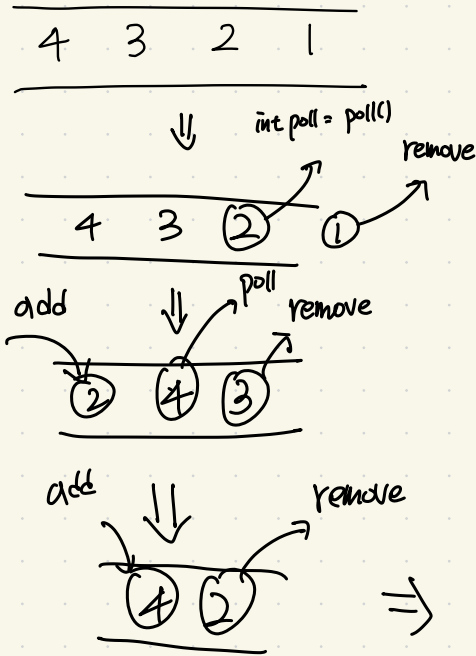 4 3 2 1
⇓ int poll = poll()
remove
4 3 ② ①
add ⇓ poll remove
② ④ ③
add ⇓ remove
④ ② ⇒